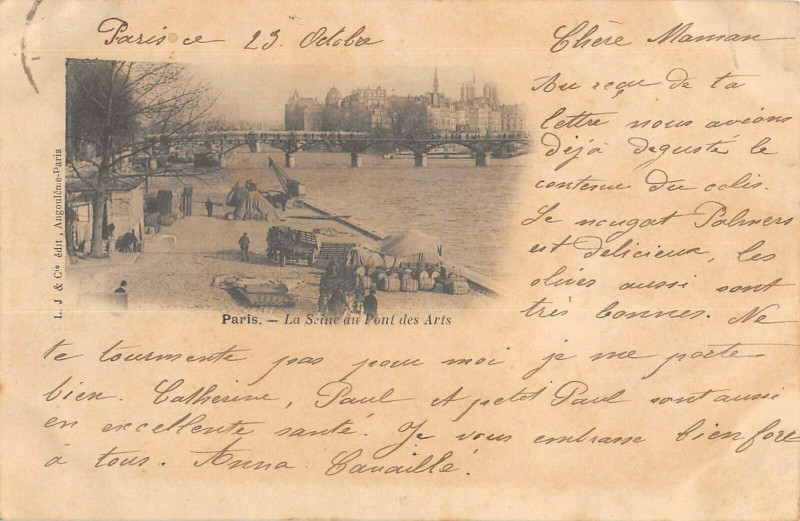 Paris ce 23. Octobre
Chère Maman
Au reçu de ta
lettre nous avions
déjà degusté le
contenu du colis.
Le nougat Palmers
est délicieux, les
olives aussi sont
très bonnes. Ne
te tourmente pas pour moi je me porte
bien. Catherine, Paul et petit Paul sont aussi
en excellente santé. Je vous embrasse bien fort
à tous. Anna Canaillé.
L. J & Cie édit, Angoulême-Paris
Paris. — La Seine au Pont des Arts